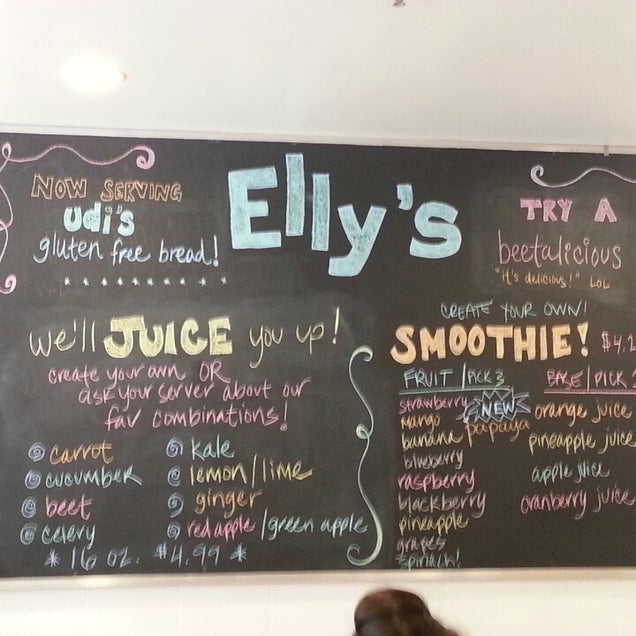 NOW SERVING
Udi's
gluten free bread!
Elly's
TRY A
beetalicious
"it's delicious!" LOL
we'll JUICE you up!
create your own OR
ask your server about our
fav combinations!
carrot
cucumber
beet
celery
kale
lemon/lime
ginger
red apple/green apple
* 16 oz. $4.99 *
CREATE YOUR OWN!
SMOOTHIE!
FRUIT / PICK 3
strawberry
mango
banana
blueberry
raspberry
blackberry
pineapple
grapes
spinach!
NEW
papaya
BASE / PICK
orange juice
pineapple juice
apple juice
cranberry juice